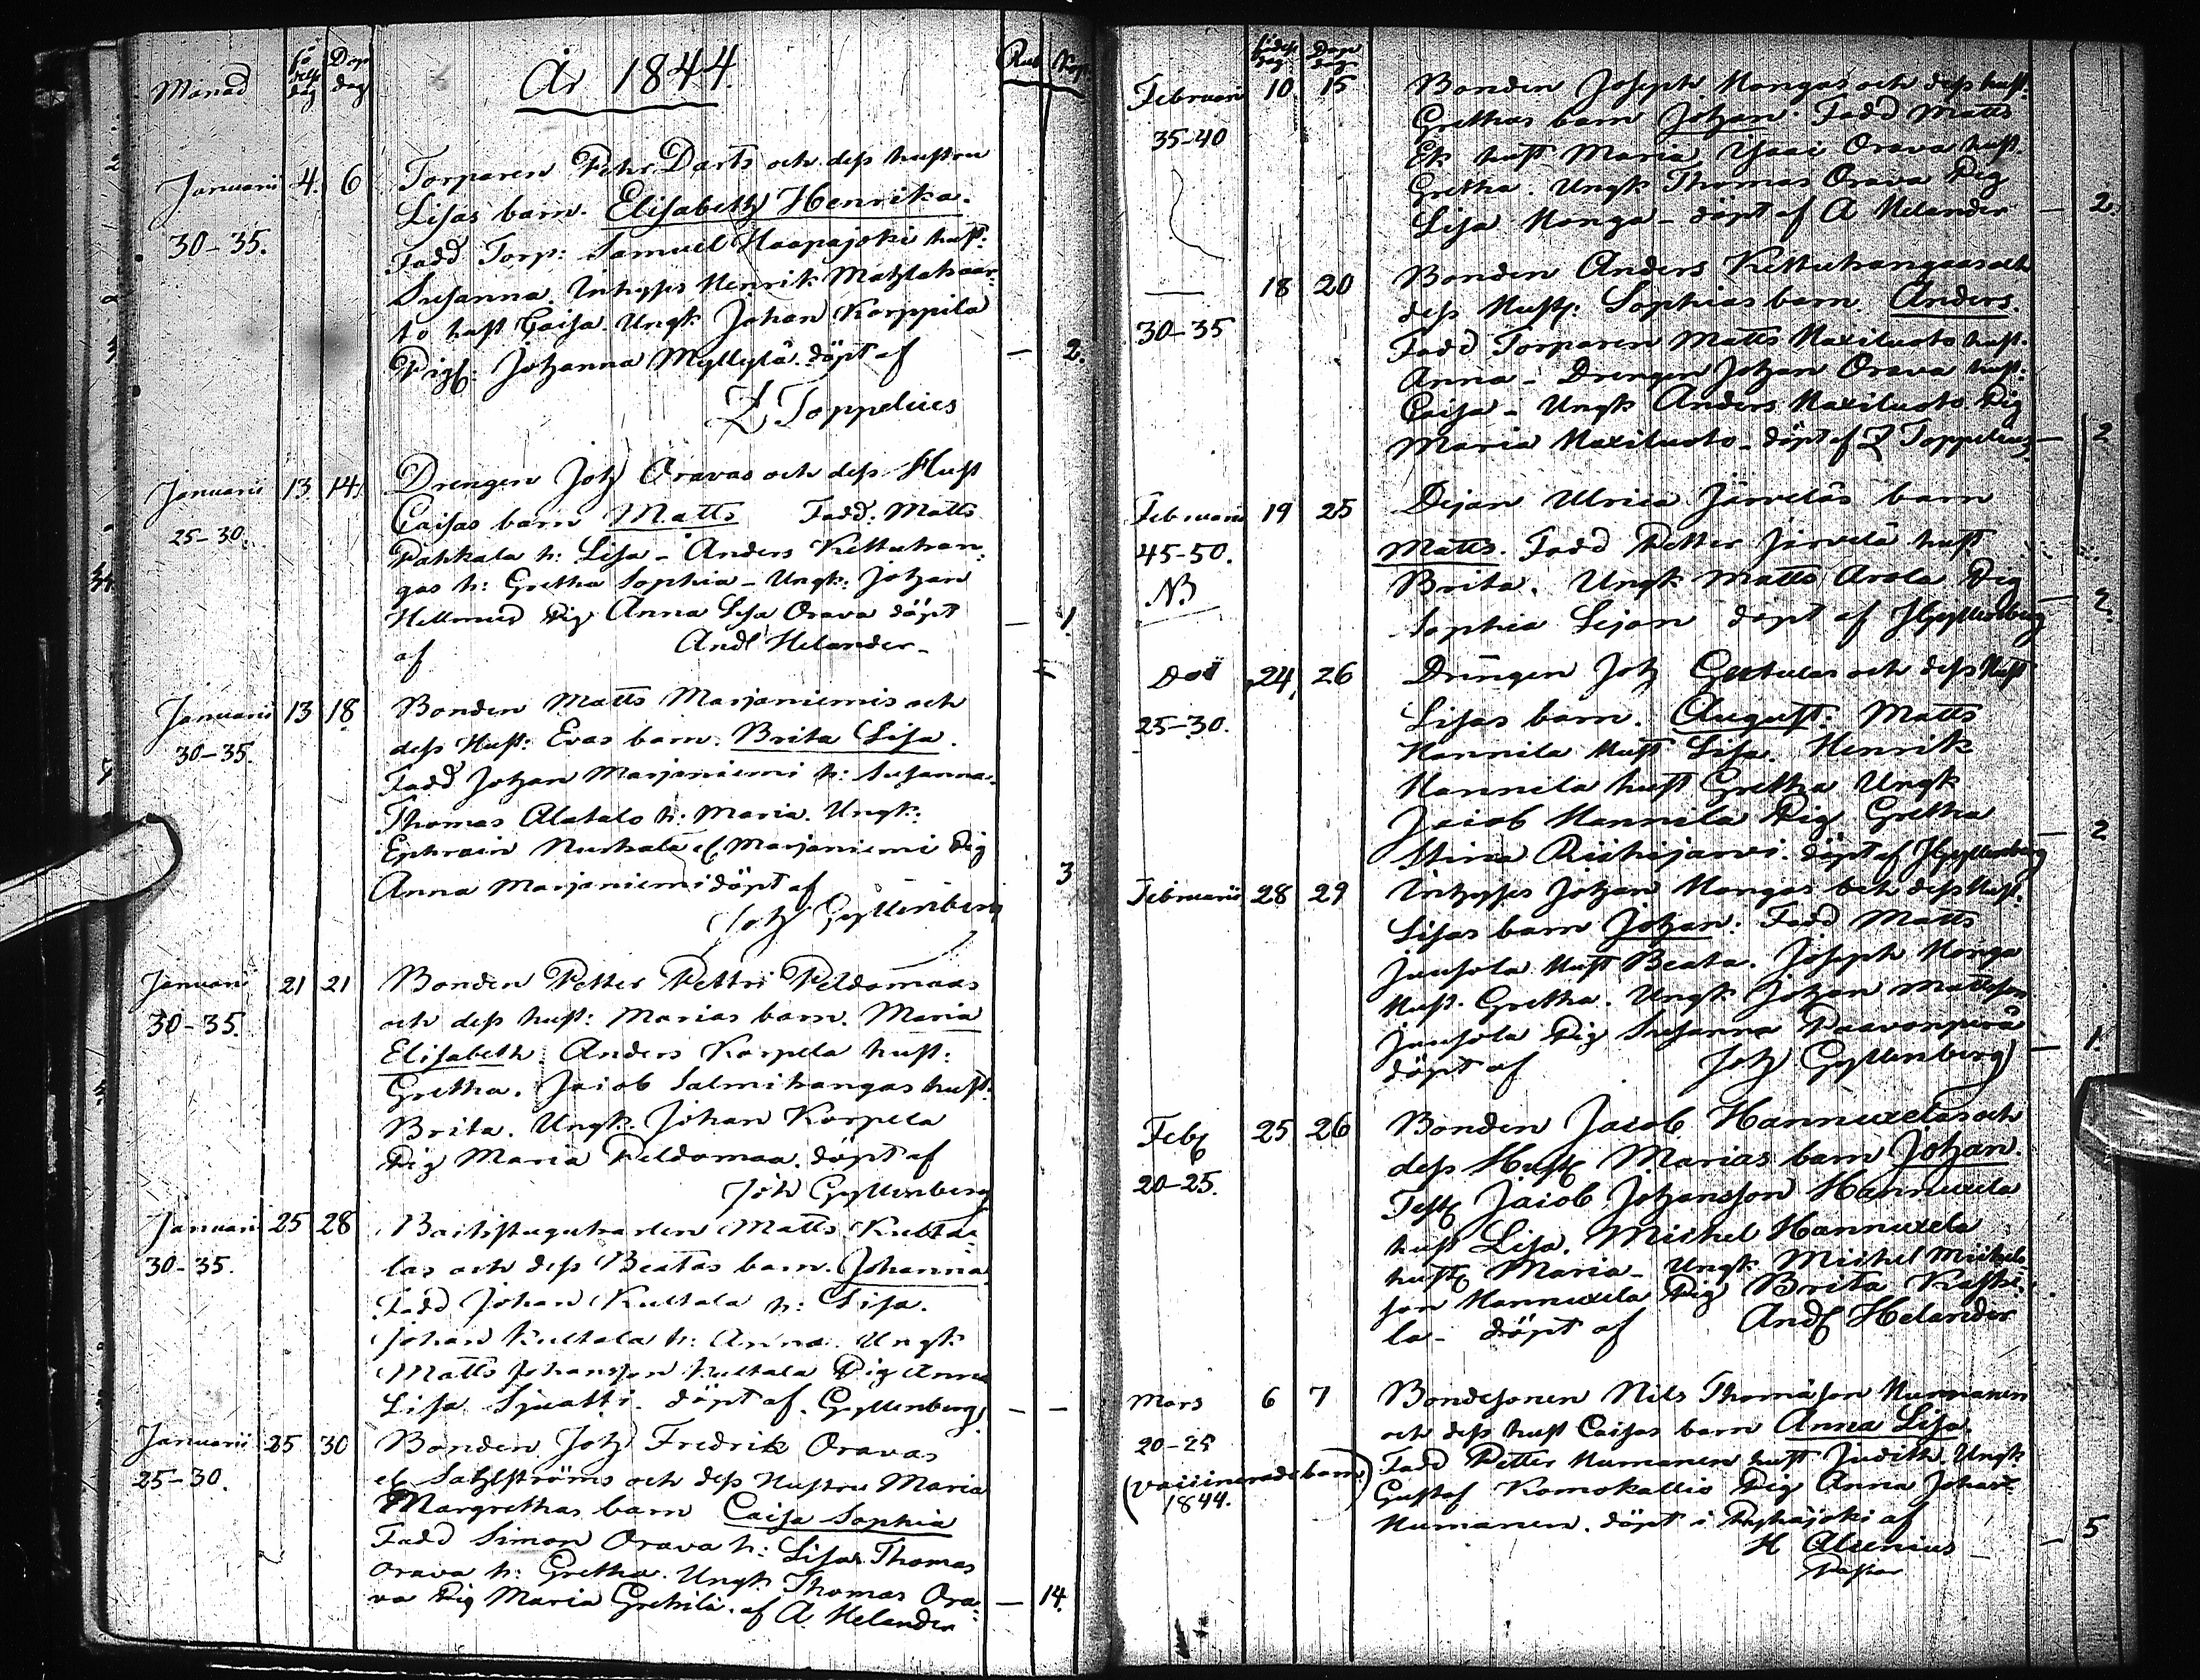 År 1844.
Månad
Rub Kop
Januarii 4. 6 Torparen Pehr Darts och dess hustru
Lisas barn. Elisabeth Henrika.
30-35. Fadd Torp: Samuel Haapajoki hust:
Susanna. Inhyses Henrik
to hust Caisa. Ungk. Johan Korppila
Pig: Johanna Myllylä. döpt af — 2.
Z Toppelius
Januarii 13 14 Drengen Joh Oravas och dess Hust
Caisas barn Matts Fadd: Matts
25-30. Pahkala h: Lisa - Anders Kettukan-
gas h: Gretha Sophia - Ungk: Johan
Hellmud Pig Anna Lisa Orava döpt — 1.
af And Helander -
Januarii 13 18 Bonden Matts Marjaniemis och
30-35. dess Hust: Evas barn. Brita Lisa.
Fadd Johan Marjaniemi h: Susanna.
Thomas Alatalo h: Maria. Ungk:
Ephraim el Marjaniemi Pig
Anna Marjaniemi döpt af 3
Joh Gyllenberg
Januari 21 21 Bonden Petter Pettri Peldomaas
30-35. och dess hust: Marias barn. Maria
Elisabeth. Anders Korpela hust:
Gretha. Jacob Salmikangas hust:
Brita. Ungk. Johan Korpela
Pig Maria Peldomaa. döpt af
Joh Gyllenberg
Januarii 25 28 Matts Kulta-
30-35. las och dess Beatas barn. Johanna
Fadd Johan Kultala h: Lisa.
Johan Kultala h: Anna. Ungk
Matts Johansson Kultala Pig Anna
Lisa döpt af. Gyllenberg. — —
Januarii 25 30 Bonden Joh Fredrik Oravas
25-30. el Sahlströms och dess Hustru Maria
Margrethas barn Caisa Sophia
Fadd Simon Orava h: Lisa Thomas
Orava h: Gretha. Ungk Thomas Ora-
va Pig Maria Grekilä. af A Helander — 14.
Februari 10 15 Bonden Joseph Hongas och dess hust.
Grethas barn Johan. Fadd Matts
35-40 Ek hust Maria, Isaac Orava hust.
Gretha. Ungk Thomas Orava Pig
Lisa Honga - döpt af A Helander — 2.
— 18 20 Bonden Anders Kettukangaas och
dess Hust: Sophias barn. Anders.
30-35 Fadd Torparen Matts Naxiluoto hust.
Anna - Drengen Johan Orava hust:
Caisa - Ungk Anders Naxiluoto Pig
Maria Naxiluoto - döpt af Z Toppelius — 2
Februarii 19 25 Dejan Ulrica Järveläs barn
45-50. Matts. Fadd Petter Järvelä hust
NB Brita. Ungk Matts Arola Pig
Sophia döpt af JGyllenberg — 2.
24 26 Drengen Joh och dess Hust
25-30. Lisas barn. August. Matts
Hannila Hust Lisa. Henrik
Hannila hust Gretha Ungk
Jacob Hannila Pig Gretha
Stina döpt af JGyllenberg — 2
Februarii 28 29 Inhyses Johan Hongas och dess Hust.
Lisas barn Johan. Fadd Matts
Junsola Hust Beata. Joseph Honga
Hust. Gretha. Ungk Johan Mattsson
Junsola Pig Susanna Paavonperä
döpt af Joh Gyllenberg — 1.
Feb 25 26 Bonden Jacob Hannuxelas och
dess Hust Marias barn Johan.
20-25. Test Jacob Johansson Hannuxela
hust Lisa. Michel Hannuxela
hust Maria - Ungk Michel Michels-
son Hannuxela Pig Brita
la - döpt af And Helander
Mars 6 7 Bondesonen Nils Thomasson Numanen
och dess hust Caisas barn Anna Lisa.
20-25 Fadd Petter Numanen hust Judith Ungk
(vaccinerade barn) Gustaf Komokallio Pig Anna
1844. Numanen. döpt i Pyhäjoki af
H Alcenius — 5
Pastor